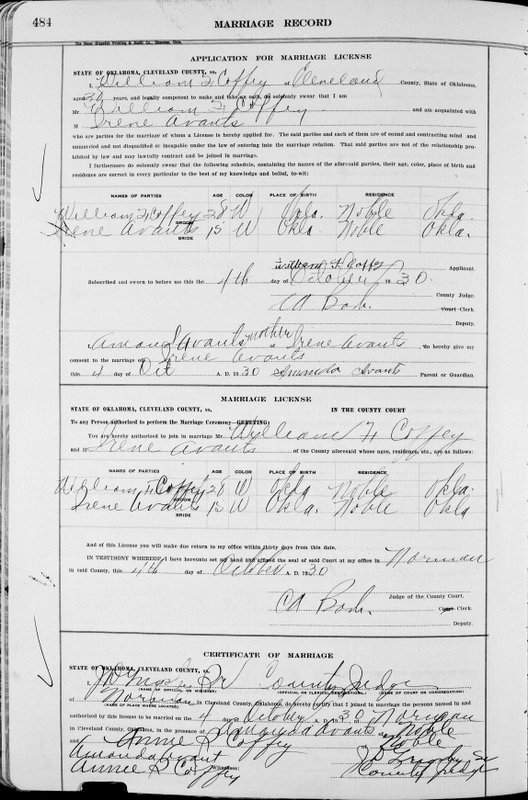 484
MARRIAGE RECORD
APPLICATION FOR MARRIAGE LICENSE
STATE OF OKLAHOMA, CLEVELAND COUNTY, ss.
I, William F Coffey of Cleveland County, State of Oklahoma,
aged years, and legally competent to make and take an oath, do solemnly swear that I am
Mr. William F. Coffey and am acquainted with
M Irene Avants
who are parties for the marriage of whom a License is hereby applied for. The said parties and each of them are of sound and contracting mind and
unmarried and not disqualified or incapable under the law of entering into the marriage relation. That said parties are not of the relationship pro-
hibited by law and may lawfully contract and be joined in marriage.
I furthermore do solemnly swear that the following schedule, containing the names of the aforesaid parties, their age, color, place of birth and
residence are correct in every particular to the best of my knowledge and belief, to-wit:
NAMES OF PARTIES AGE COLOR PLACE OF BIRTH RESIDENCE
William F Coffey 28 W Okla. Noble Okla.
GROOM
Irene Avants 15 W Okla. Noble Okla.
BRIDE
William F. Coffey Applicant.
Subscribed and sworn to before me this the 4th day of October 1930
County Judge.
Court Clerk.
Deputy.
I Avants mother of Irene Avants, do hereby give my
consent to the marriage of Irene Avants
this 4 day of Oct A. D. 1930 Amanda Avants Parent or Guardian.
MARRIAGE LICENSE
STATE OF OKLAHOMA, CLEVELAND COUNTY, ss. IN THE COUNTY COURT
To any Person authorized to perform the Marriage Ceremony GREETING:
You are hereby authorized to join in marriage Mr. William F Coffey
and M Irene Avants of the County aforesaid whose ages, residence, etc., are as follows:
NAMES OF PARTIES AGE COLOR PLACE OF BIRTH RESIDENCE
William F. Coffey 28 W Okla Noble Okla.
GROOM
Irene Avants 15 W Okla. Noble Okla
BRIDE
And of this License you will make due return to my office within thirty days from this date.
IN TESTIMONY WHEREOF, I have hereunto set my hand and affixed the seal of said Court at my office in Norman
in said County, this 4th day of October A. D. 1930
Judge of the County Court.
Court Clerk.
Deputy.
CERTIFICATE OF MARRIAGE
STATE OF OKLAHOMA, CLEVELAND COUNTY, ss.
County Judge
(NAME OF OFFICIAL OR MINISTER)
of Norman
in Cleveland County, Oklahoma, do hereby certify that I joined in marriage the persons named in and
authorized by this license to be married on the 4 day of October A. D. 1930 Norman
in Cleveland County, Oklahoma, in the presence of Amanda Avants Noble
Annie R Coffey Noble
Amanda Avant
Annie R Coffey County Judge